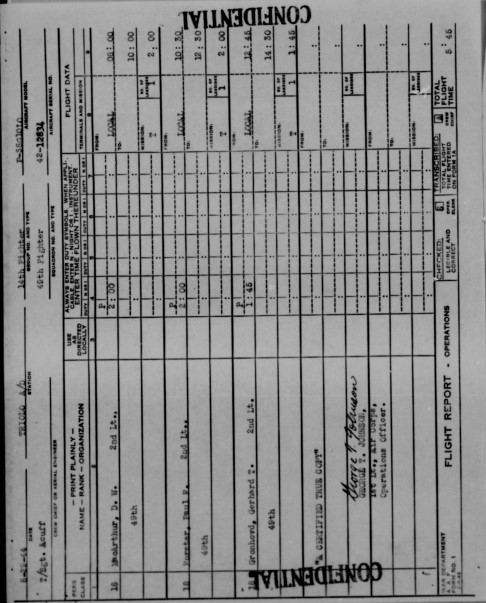 CONFIDENTIAL
8-22-44 DATE
TRIOLO A/D STATION
14th Fighter GROUP NO. AND TYPE
P-38-J010 AIRCRAFT MODEL
T/Sgt. Acuff CREW CHIEF OR AERIAL ENGINEER
49th Fighter SQUADRON NO. AND TYPE
42-12834 AIRCRAFT SERIAL NO.
PERS CLASS
- PRINT PLAINLY -
NAME - RANK - ORGANIZATION
USE AS DIRECTED LOCALLY
ALWAYS ENTER DUTY SYMBOLS. WHEN APPLI-
CABLE ENTER N - NIGHT OR I - INSTRUMENT.
ENTER TIME FLOWN THEREUNDER
FLIGHT DATA
TERMINALS AND MISSION
18 McArthur, D. W. 2nd Lt., P FROM: LOCAL 08: 00
2: 00 TO: 10: 00
49th MISSION: T NO. OF LANDINGS 1 2: 00
18 Forster, Paul F. 2nd Lt., P FROM: LOCAL 10: 30
2: 00 TO: 12: 30
49th MISSION: T NO. OF LANDINGS 1 2: 00
Gronhovd, Gerhard T. 2nd Lt., P FROM: LOCAL 12: 45
1: 45 TO: 14: 30
49th MISSION: T NO. OF LANDINGS 1 1: 45
"A CERTIFIED TRUE COPY"
George T. Johnson
GEORGE T. JOHNSON,
1st Lt., Air Corps,
Operations Officer.
WAR DEPARTMENT
FORM NO. 1
FLIGHT REPORT - OPERATIONS
CHECKED: LEGIBLE AND CORRECT
TRANSCRIBED: TOTAL FLIGHT TIME ENTERED ON FORM 1A
TOTAL FLIGHT TIME 5: 45
CONFIDENTIAL